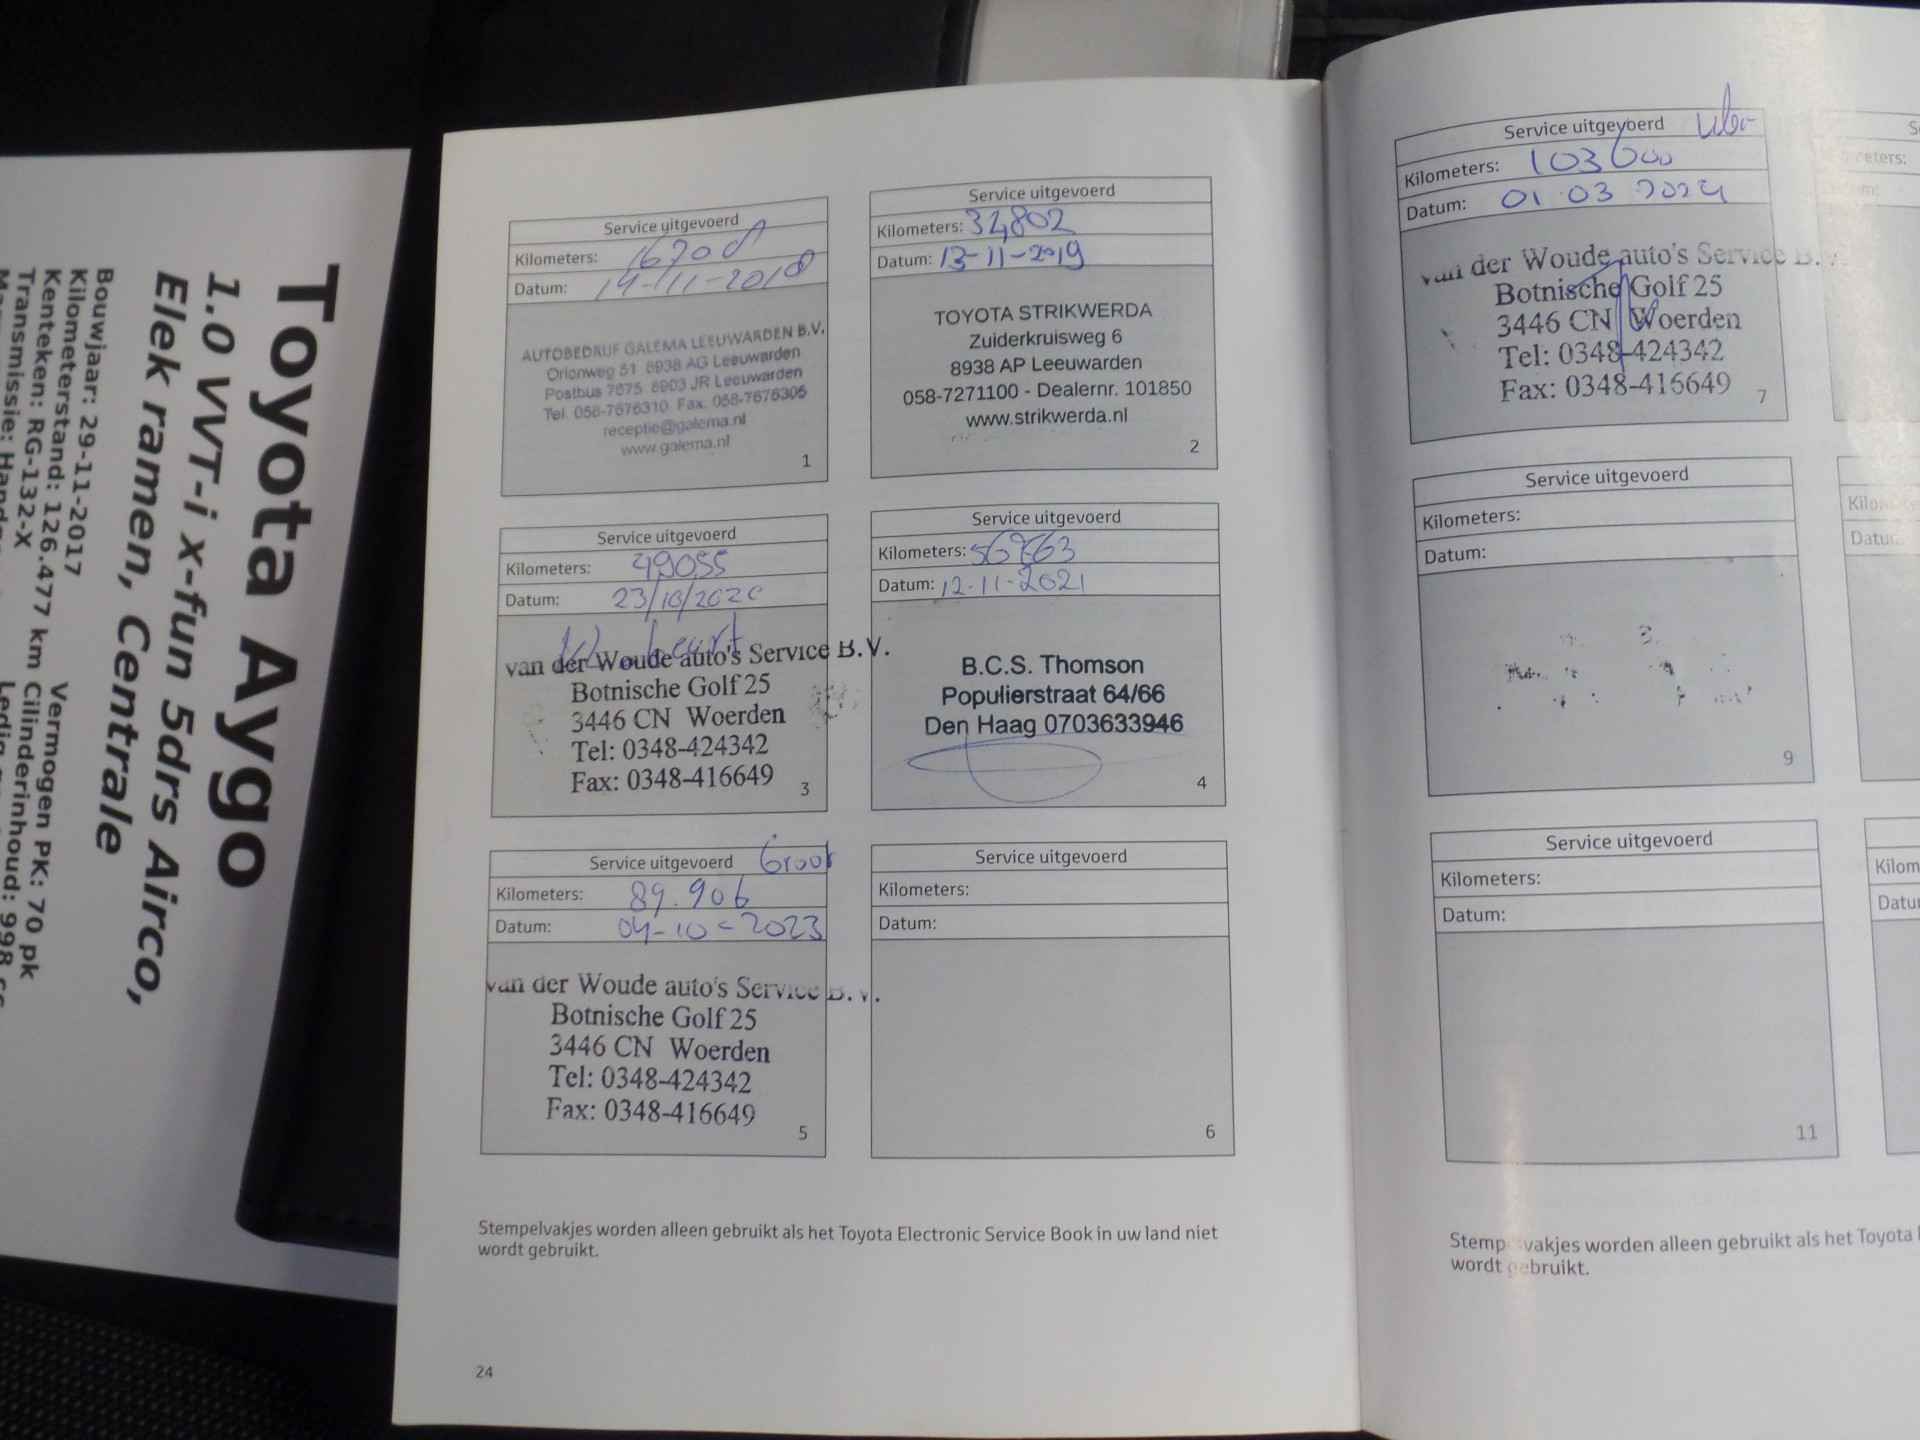 Toyota Aygo
1.0 VVT-i x-fun 5drs Airco,
Elek ramen, Centrale
Bouwjaar: 29-11-2017
Kilometerstand: 126.477 km
Kenteken: RG-132-X
Transmissie:
Vermogen PK: 70 pk
Cilinderinhoud: 998 cc
Service uitgevoerd
Kilometers: 16708
Datum: 14-11-2018
AUTOBEDRIJF GALEMA LEEUWARDEN B.V.
Orionweg 51 8938 AG Leeuwarden
Postbus 7675 8903 JR Leeuwarden
Tel. 058-7676310 Fax. 058-7676305
receptie@galema.nl
www.galema.nl
1
Service uitgevoerd
Kilometers: 34,802
Datum: 13-11-2019
TOYOTA STRIKWERDA
Zuiderkruisweg 6
8938 AP Leeuwarden
058-7271100 - Dealernr. 101850
www.strikwerda.nl
2
Service uitgevoerd
Kilometers: 49055
Datum: 23/10/2020
beurt
van der Woude auto's Service B.V.
Botnische Golf 25
3446 CN Woerden
Tel: 0348-424342
Fax: 0348-416649
3
Service uitgevoerd
Kilometers: 56763
Datum: 12-11-2021
B.C.S. Thomson
Populierstraat 64/66
Den Haag 0703633946
4
Service uitgevoerd Groot
Kilometers: 89.906
Datum: 04-10-2023
van der Woude auto's Service B.V.
Botnische Golf 25
3446 CN Woerden
Tel: 0348-424342
Fax: 0348-416649
5
Service uitgevoerd
Kilometers:
Datum:
6
Stempelvakjes worden alleen gebruikt als het Toyota Electronic Service Book in uw land niet
wordt gebruikt.
24
Service uitgevoerd
Kilometers: 103600
Datum: 01 03 2024
van der Woude auto's Service B.
Botnische Golf 25
3446 CN Woerden
Tel: 0348-424342
Fax: 0348-416649
7
Service uitgevoerd
Kilometers:
Datum:
9
Service uitgevoerd
Kilometers:
Datum:
11
Stempelvakjes worden alleen gebruikt als het Toyota
wordt gebruikt.